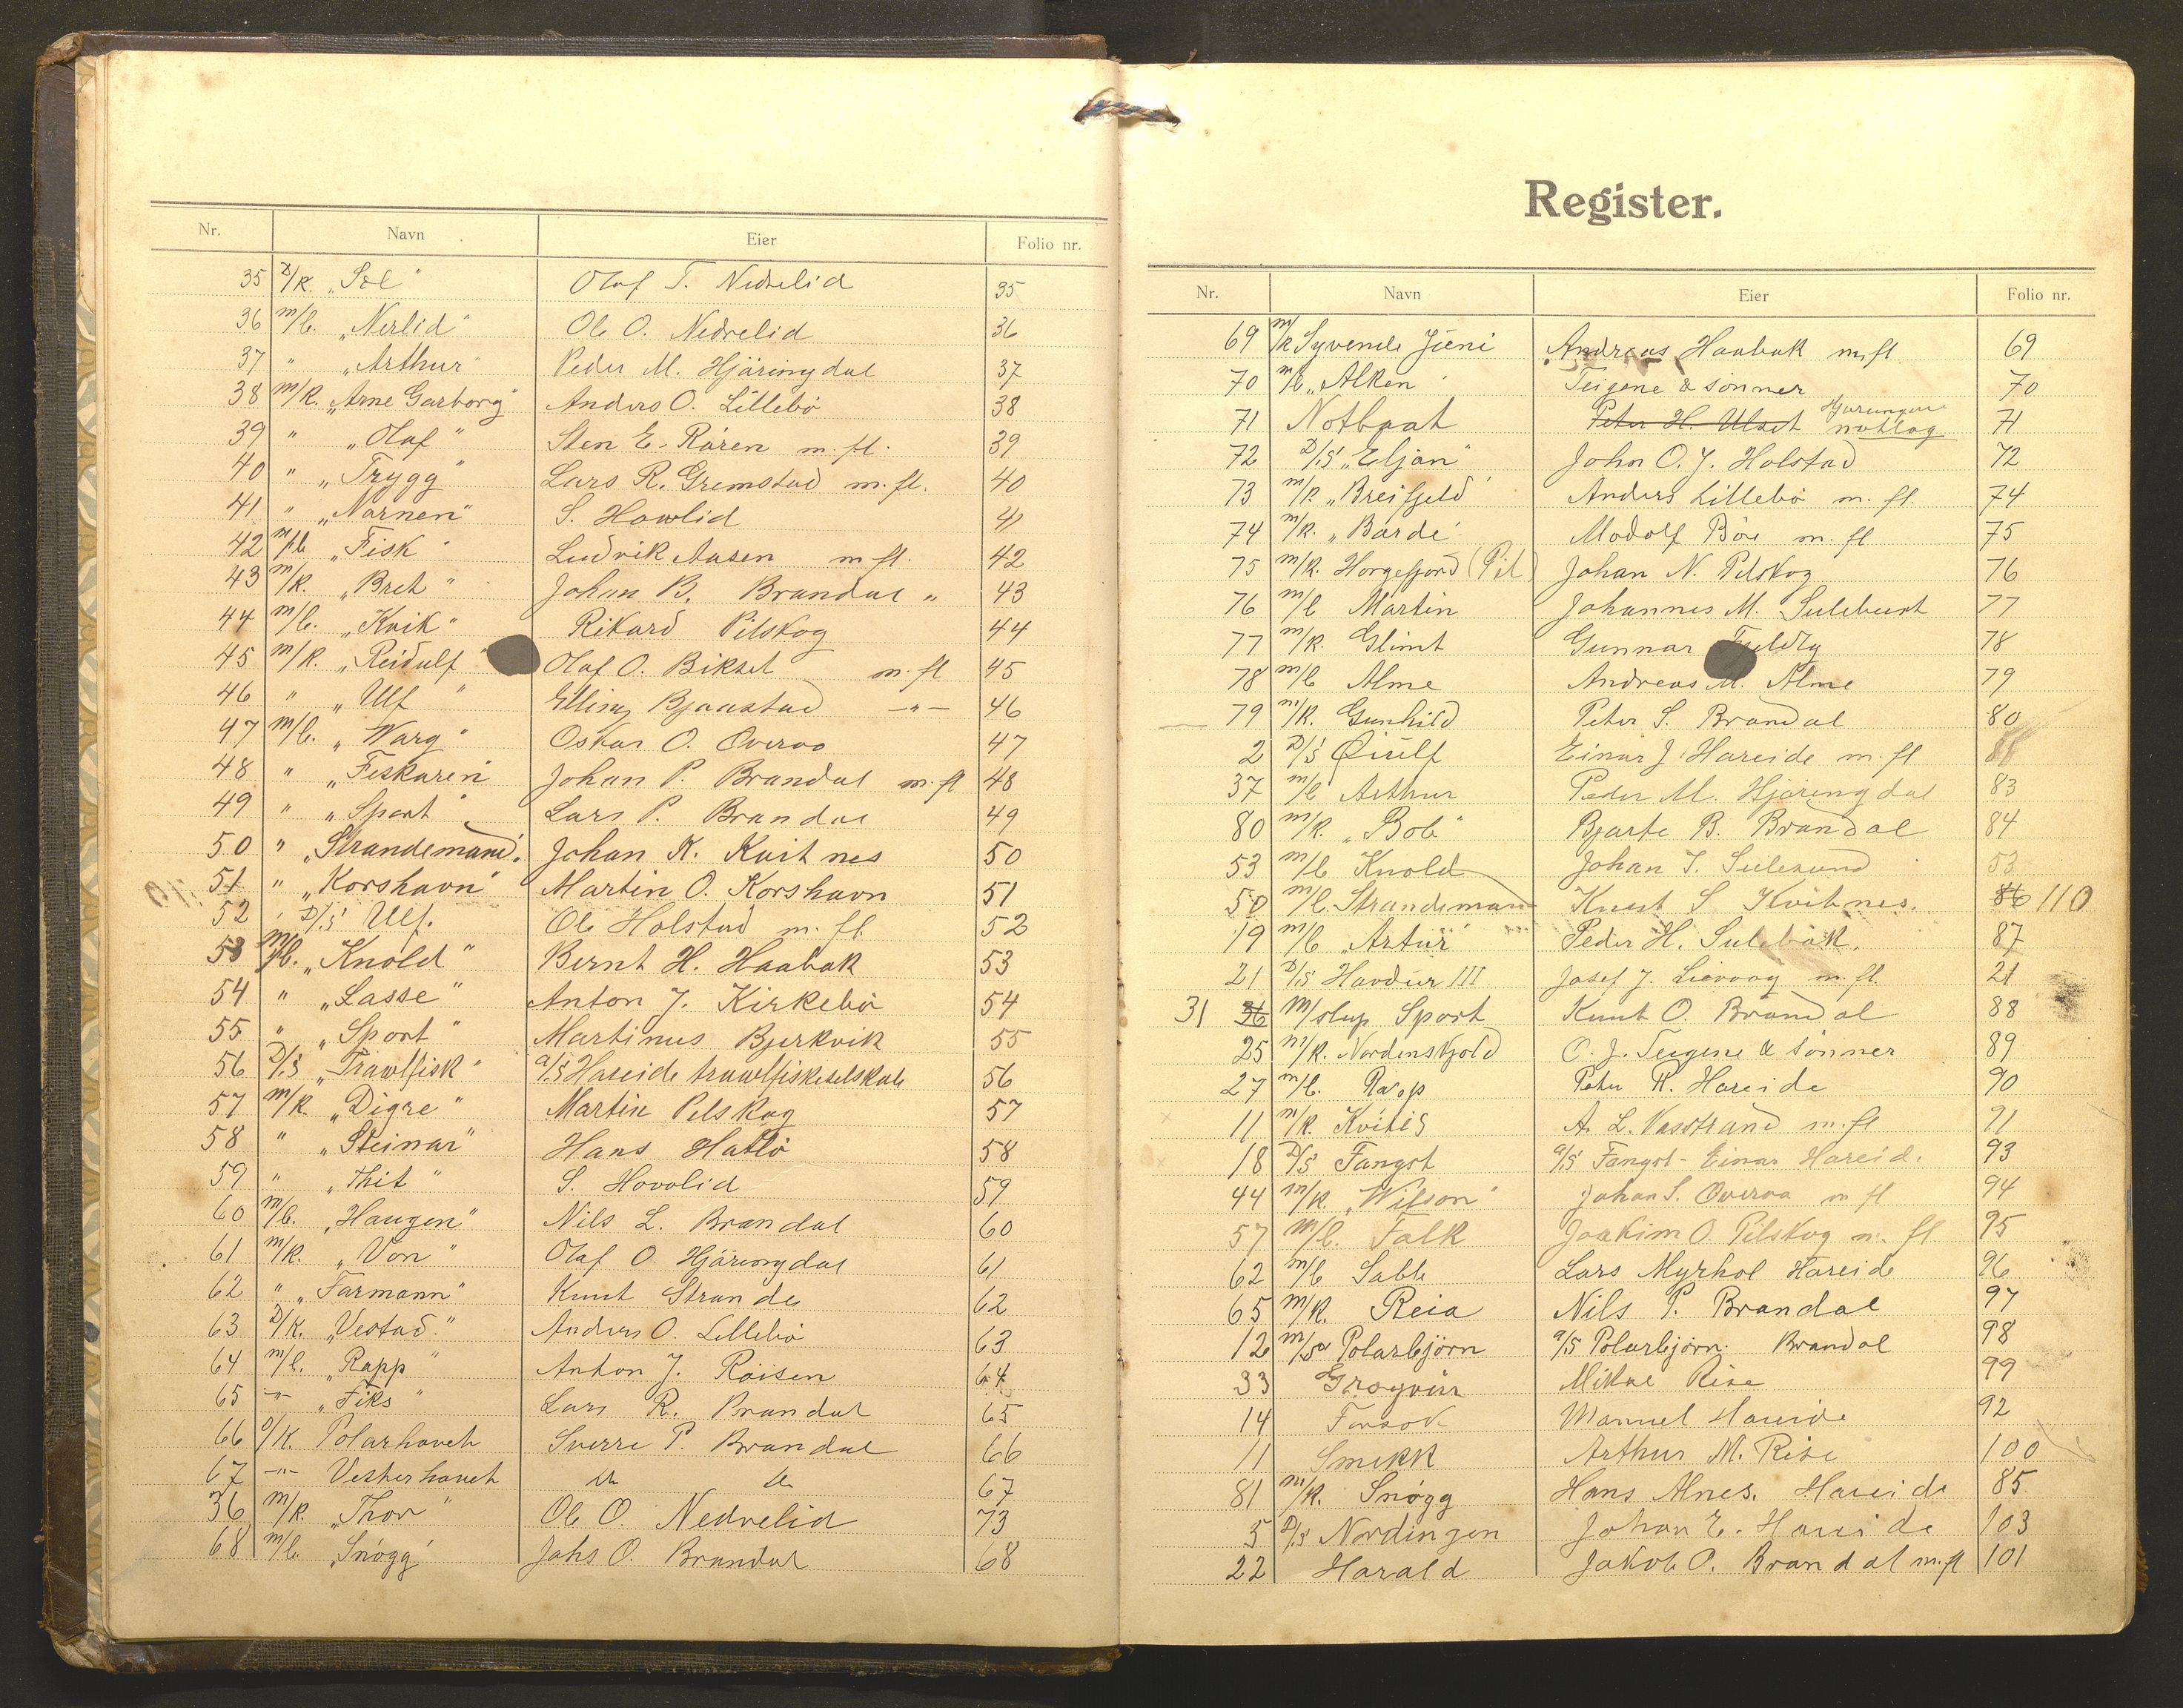 Nr. Navn Eier Folio nr.
35 D/k. „Sol" Olaf T. Nedrelid 35
36 m/b. „Nerlid" Ole O. Nedrelid 36
37 " „Arthur" Peder M. Hjöringdal 37
38 m/k. „Arne Garborg" Anders O. Lillebö 38
39 " „Olaf" Sten E. Råren m. fl. 39
40 " „Trygg" Lars R. Gremstad m. fl. 40
41 " „Nornen" S. Hovlid 41
42 m/b „Fisk" Ludvik Aasen m fl. 42
43 m/k. „Bret" Johan B. Brandal " 43
44 m/b. „Kvik" Rikard Pilskog 44
45 m/k. „Reidulf" Olaf O. Bikset m. fl 45
46 " „Ulf" Elling Bjaastad —"— 46
47 m/b. „Warg" Oskar O. Overaa 47
48 " „Fiskaren" Johan P. Brandal m. fl 48
49 " „Sport" Lars P. Brandal 49
50 " „Strandemand". Johan K. Kvitnes 50
51 " „Korshavn" Martin O. Korshavn 51
52 D/S Ulf. Ole Holstad m. fl 52
53 m/b. „Knold" Bernt H. Haabak 53
54 " „Lasse" Anton J. Kirkebö 54
55 " „Sport" Martinus Bjerkvik 55
56 D/S „Trawlfisk" a/s Hareide trawlfiskeselskab 56
57 m/k „Digre" Martin Pilskog 57
58 " „Steinar" Hans Hatlö 58
59 " „Thit" S. Hovlid 59
60 m/b. „Haugen" Nils L. Brandal 60
61 m/k. „Von" Olaf O. Hjöringdal 61
62 " „Farmann" Knut Strande 62
63 D/k. „Vestad." Anders O. Lillebö 63
64 m/b. „Rapp" Anton J. Röisen 64
65 —"— „Fiks" Lars R. Brandal 65
66 D/k. Polarhavet Sverre P. Brandal 66
67 —"— Vesterhavet do do 67
36 m/k. „Thor" Ole O. Nedrelid 73
68 m/b. „Snögg" Johs O. Brandal 68
Register.
Nr. Navn Eier Folio nr.
69 m/k Syvende Juni Andreas Haabak m. fl 69
70 m/b „Alken" Teigene & sönner 70
71 Notbaat Peter H. Ulset Hjørungav. notlag 71
72 D/S „Eljan" John O. J. Holstad 72
73 m/k. „Breifjeld" Anders Lillebö m. fl. 74
74 m/k. „Bårde" Modolf Böe m. fl 75
75 m/k. Horgefjord (Pil) Johan N. Pilskog 76
76 m/b Martin Johannes M. Sulebust 77
77 m/k. Glimt Gunnar 78
78 m/b Alme Andreas M. Alme 79
79 m/k. Gunhild Peter S. Brandal 80
2 D/S Qvulf Einar J. Hareide m. fl 81
37 m/b Arthur Peder M. Hjöringdal 83
80 m/k. „Bob" Bjarte B. Brandal 84
53 m/b Knold Johan J. Sulesund 53
50 m/b. Strandeman Knut S Kvitnes. 86 110
19 m/b „Artur" Peder H. Sulebak. 87
21 D/S Havdur III Josef J. Liavaag m. fl. 21
31 36 M/slup Sport Knut O. Brandal 88
25 m/k. Nordenskjold O. J. Teigene & sönner 89
27 m/b. Rapp Peter K. Hareide 90
11 m/k. Kvitis A. L. Vasstrand m. fl 91
18 D/S Fangst a/s Fangst - Einar Hareid. 93
44 m/k. „Wilson" Johan S. Overaa m fl 94
57 m/b. Falk Joakim O. Pilskog m. fl. 95
62 m/b Sabb Lars Myrhol Hareide 96
65 m/k. Reia Nils P. Brandal 97
12 m/sa Polarbjörn a/s Polarbjörn. Brandal 98
33 Mikal Rise 99
14 Forsok Manuel Hareide 92
11 Smekk Arthur M. Rise 100
81 m/k. Snögg Hans Alnes. Hareide 85.
5 D/S Nordingen Johan E. Hareide 103
22 Harald Jakob O. Brandal m. fl 101